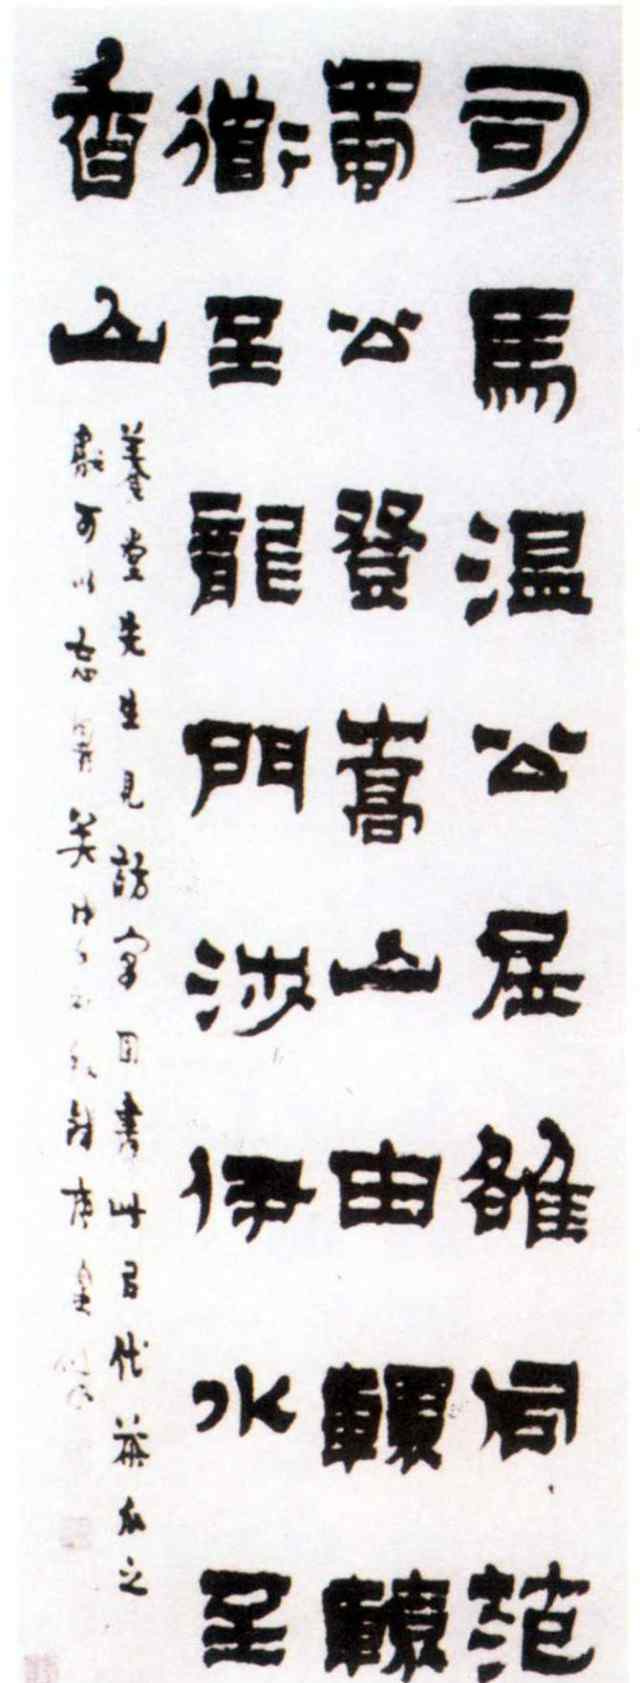 司馬溫公居雒同范
蜀公登嵩山由轘轅
衜至龍門涉伊水至
香山
堂先生見訪因書此㠯代茶瓜之
獻可以忘暑矣錢唐金農